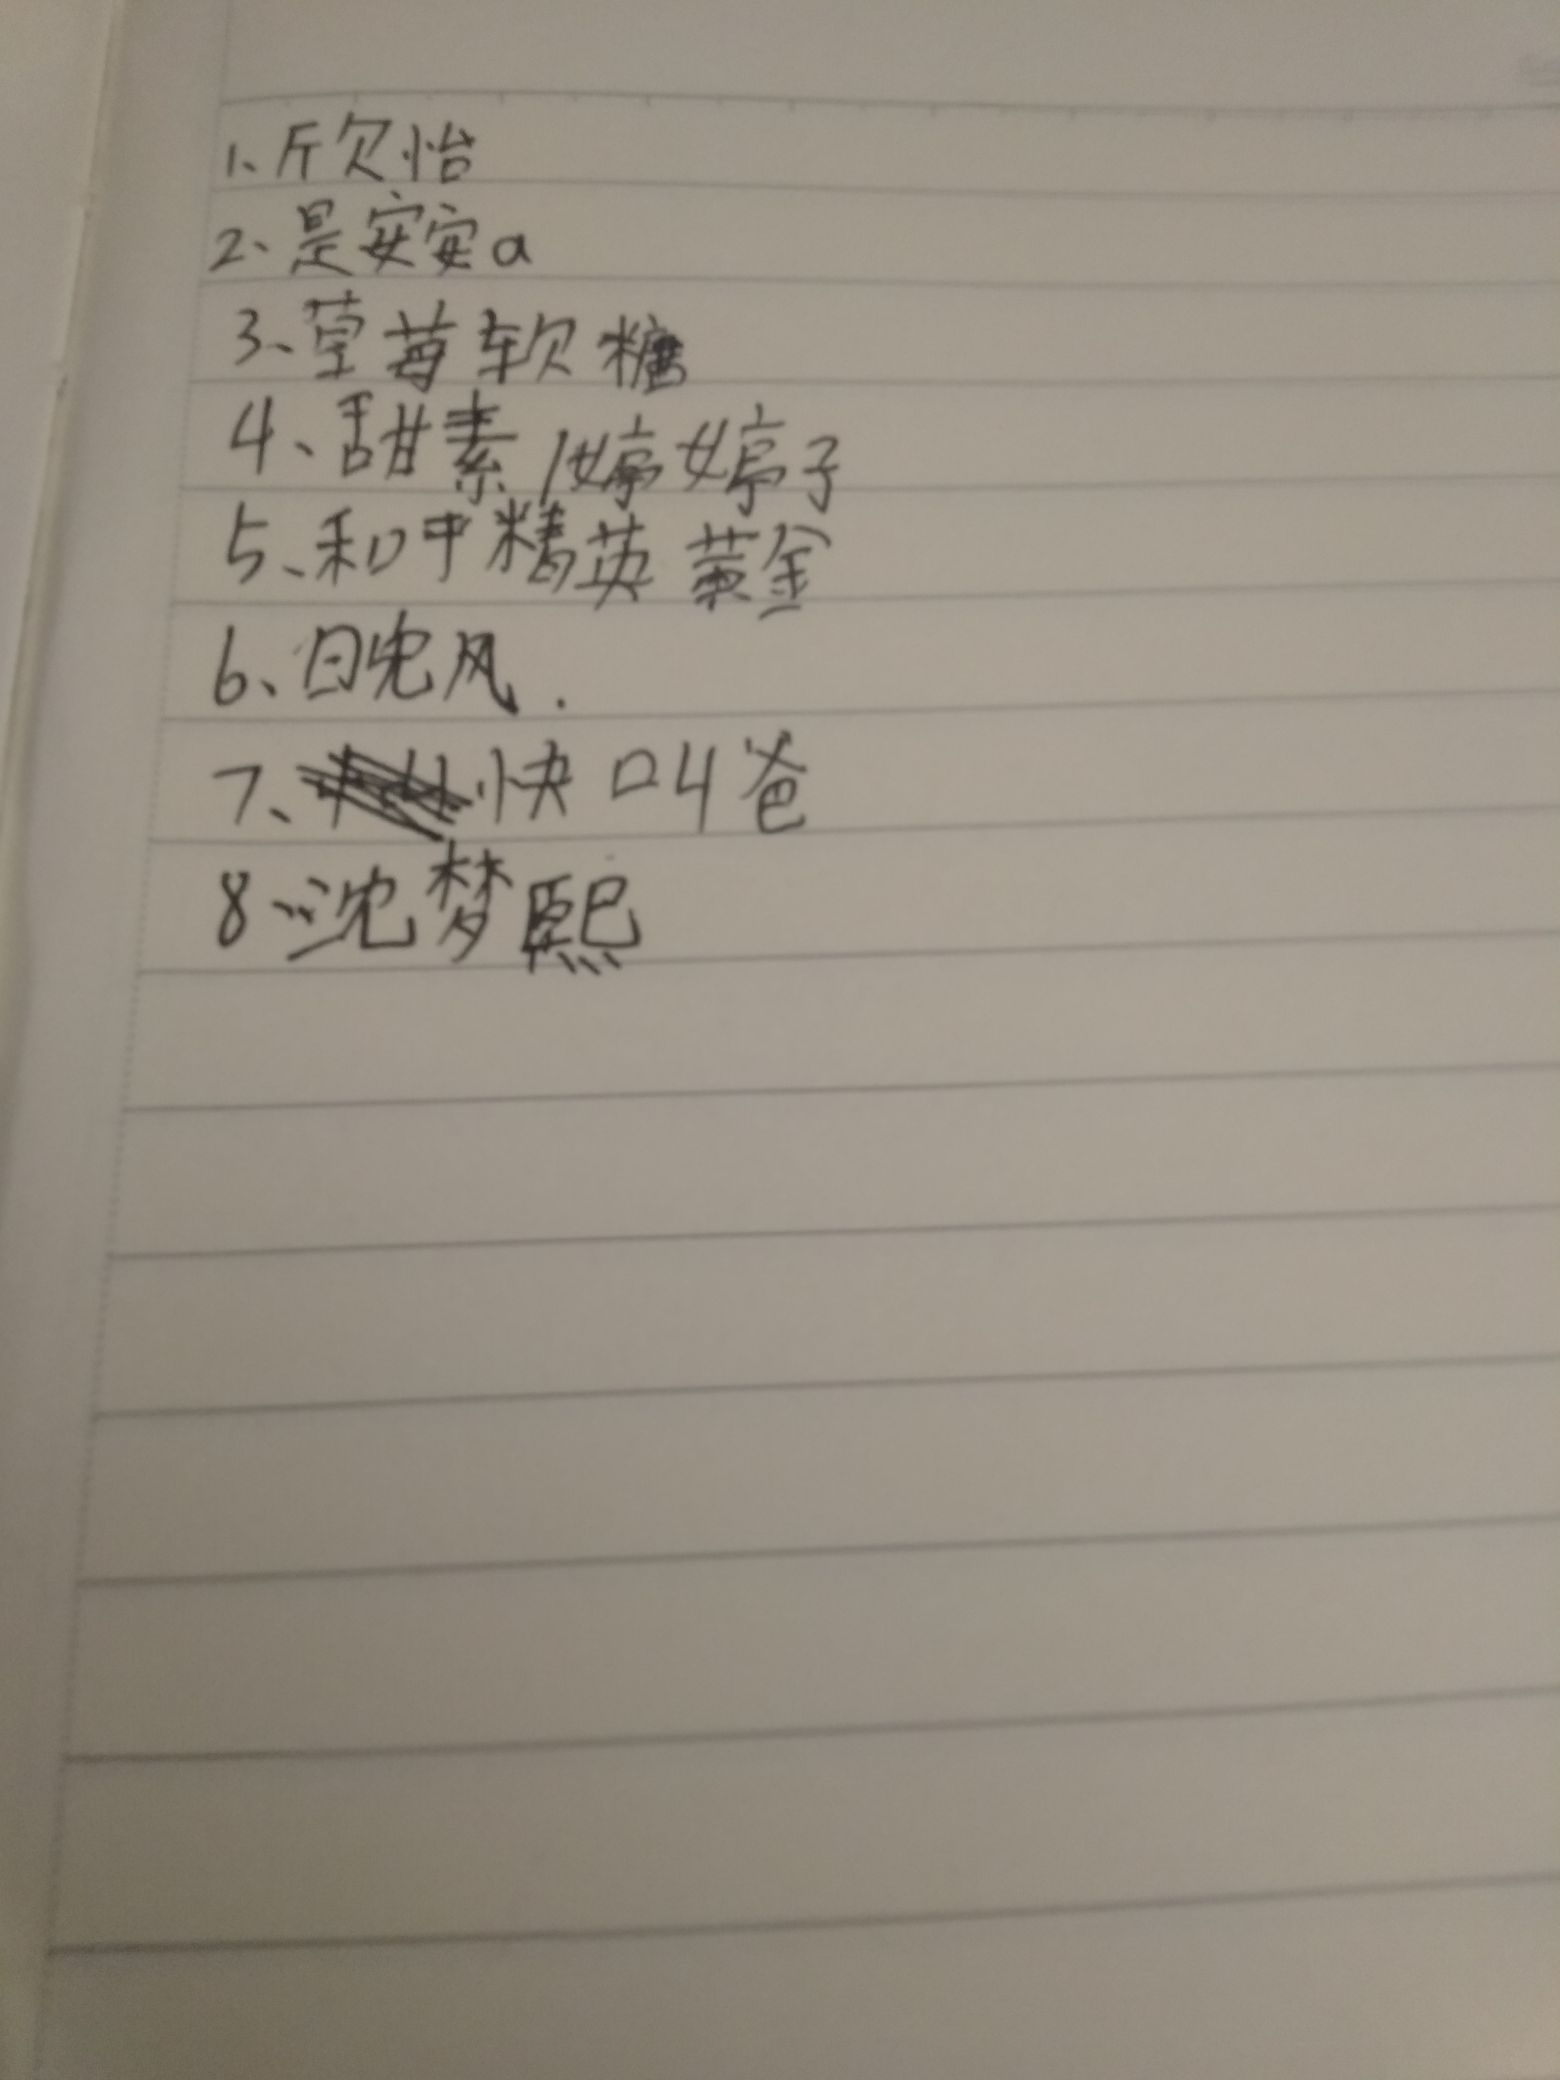 1、欣怡
2、是安安a
3、草莓软糖
4、甜素/婷婷子
5、和平精英 黄金
6、晚风.
7、快叫爸
8、沈梦熙